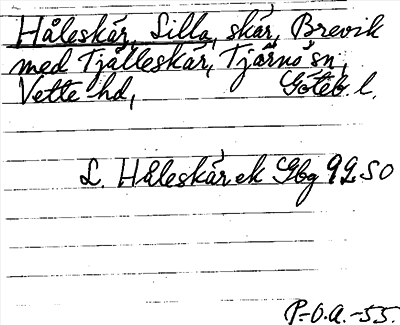 Håleskär, Silla, skär, Brevik
med Tjälleskär, Tjärnö sn,
Vette hd, Göteb. l.
L. Håleskär ek Gbg 99 SO
P.-O.A.-55.